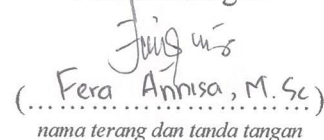 (Fera Annisa, M.Sc)
nama terang dan tanda tangan